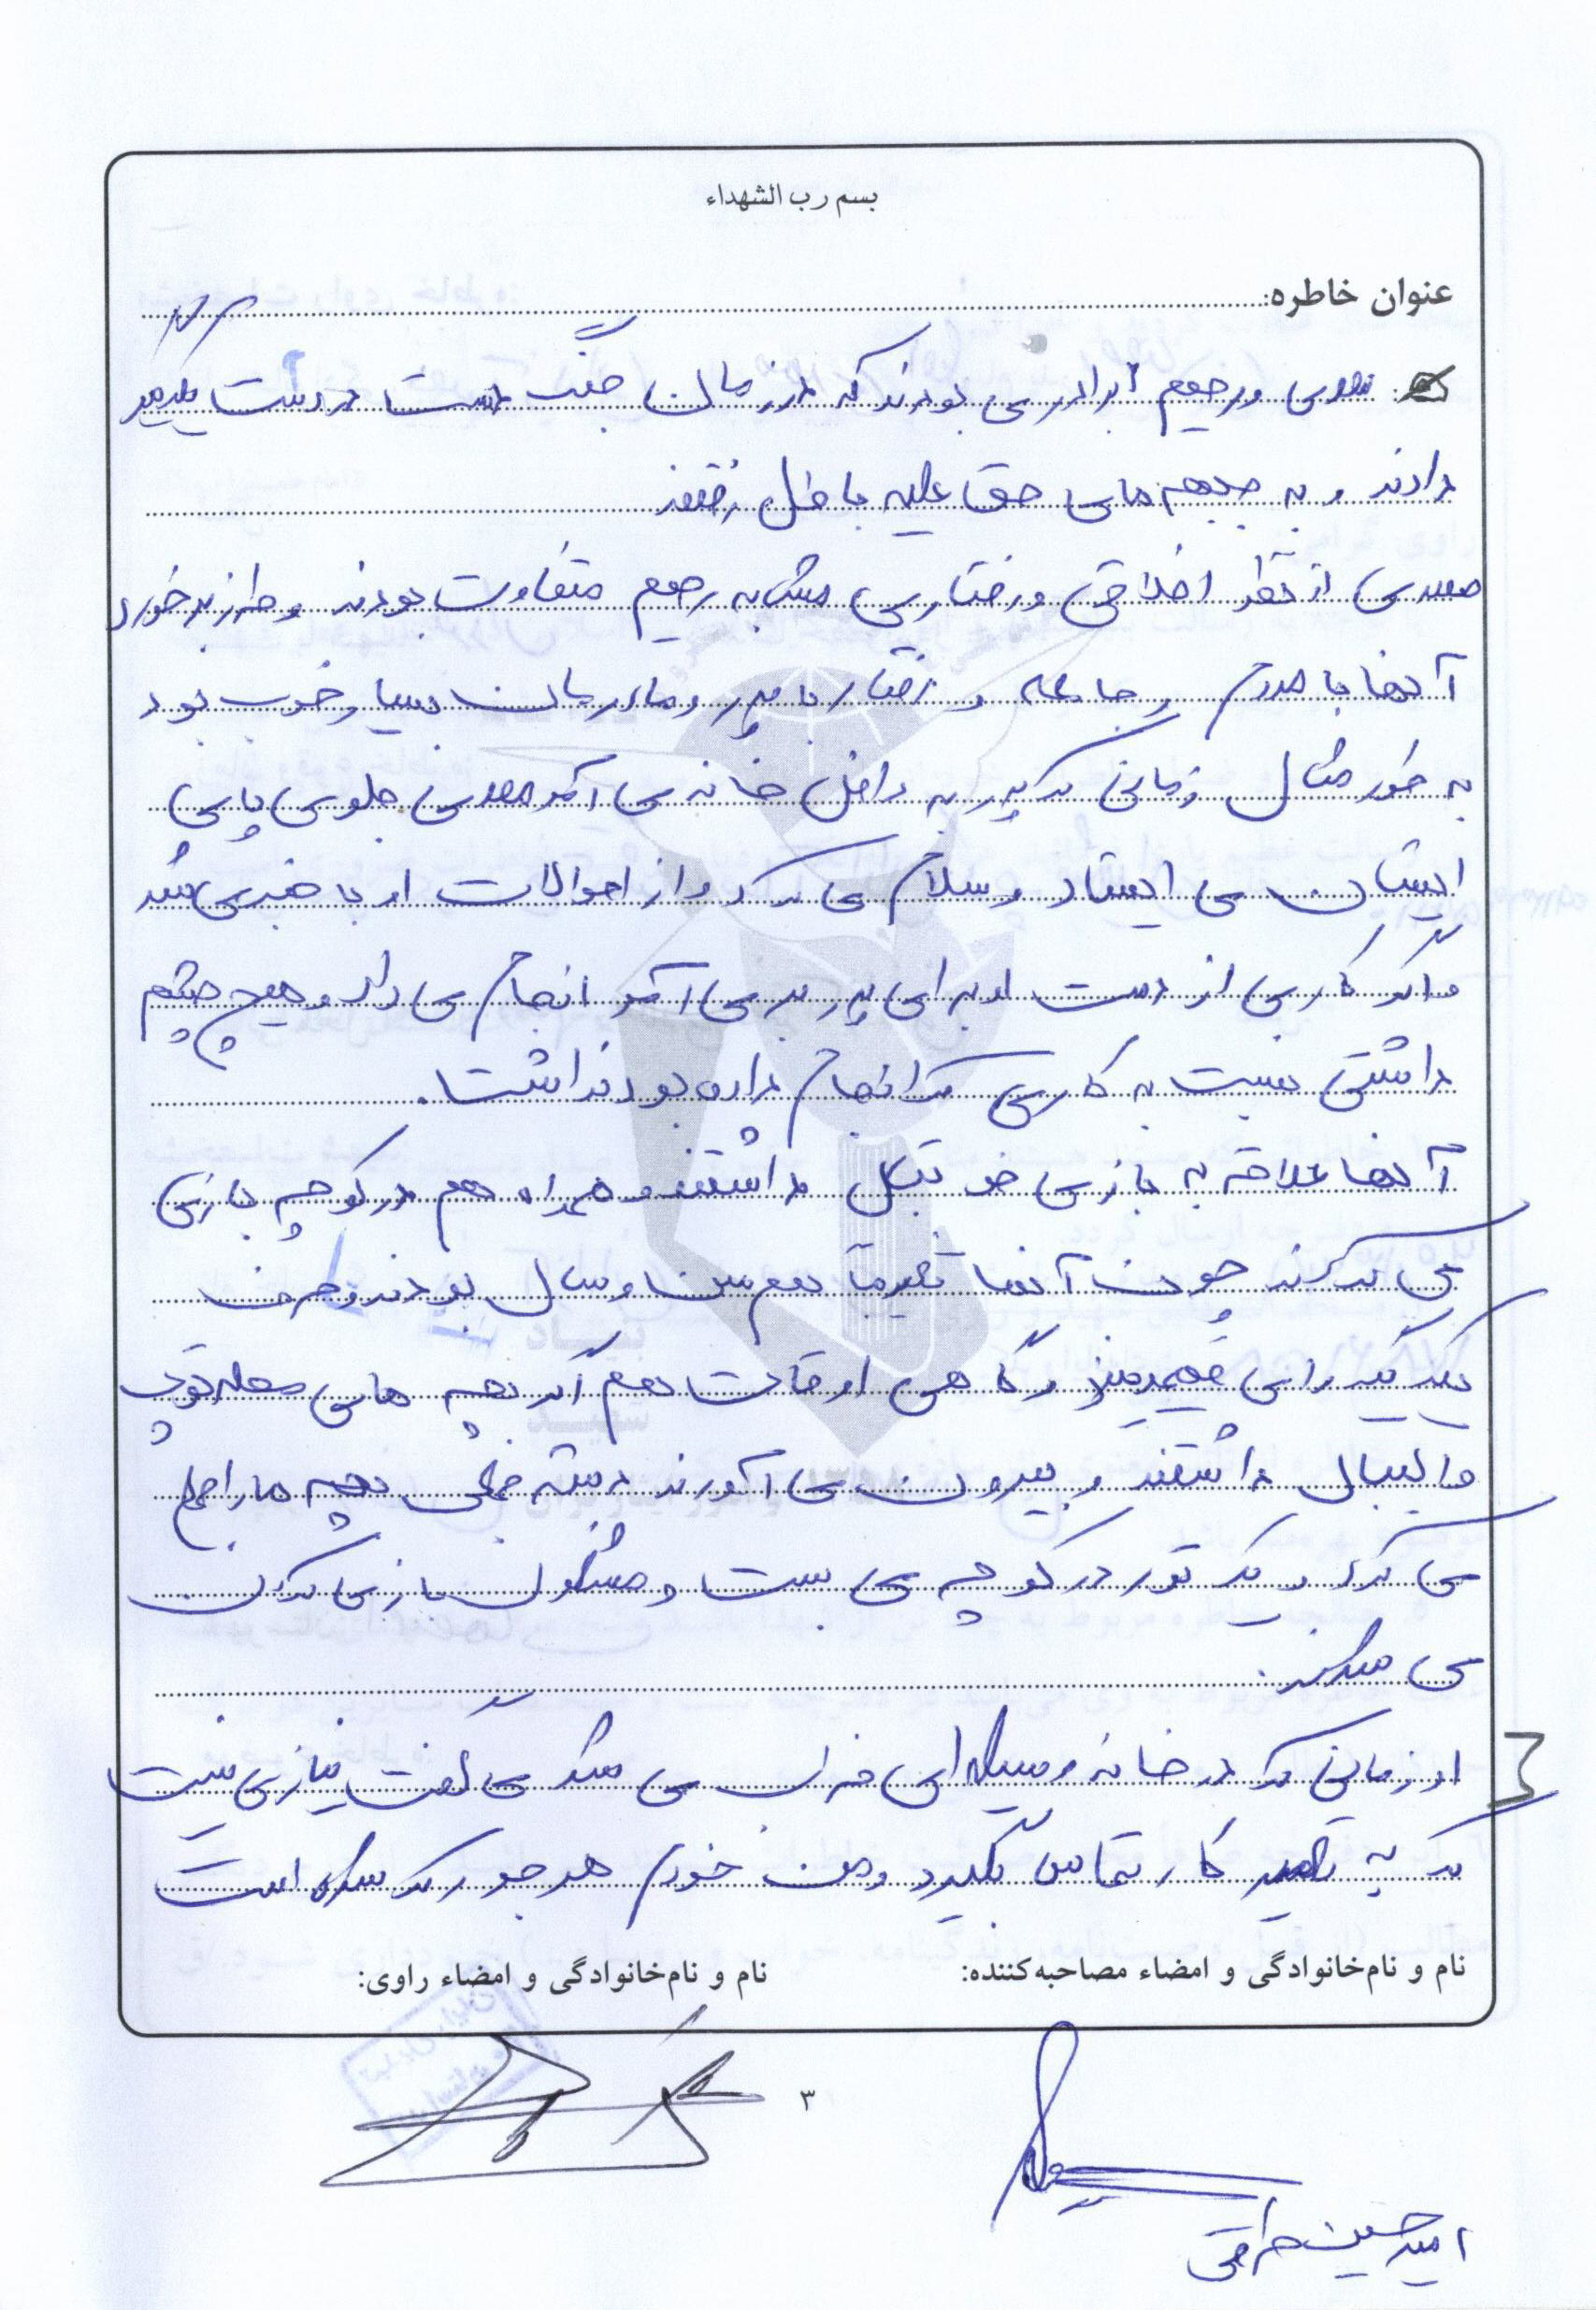 بسم رب الشهداء
عنوان خاطره:
مهدی و رحیم برادری بودند که در زمان جنگ دست در دست یکدیگر
دادند و به جبهه های حق علیه باطل رفتند
مهدی از نظر اخلاقی و رفتاری مشابه رحیم متفاوت بودند و طرز برخورد
آنها با مردم و جامعه و رفتار با پدر و مادرمان بسیار خوب بود
به طور مثال زمانی که پدر به داخل خانه می آمد مهدی جلوی پای
ایشان می ایستاد و سلام می کرد و از احوالات او با خبر می شد
و اگر کاری از دست او برای پدر بر می آمد انجام می داد و هیچ چشم
داشتی نسبت به کاری که انجام داده بود نداشت.
آنها علاقه به بازی فوتبال داشتند و همراه هم در کوچه بازی
می کردند چون آنها تقریبا هم سن و سال بودند و حرف
یکدیگر را می فهمیدند و گاهی اوقات هم اگر بچه های محله توپ
والیبال داشتند و بیرون می آورند دسته جمعی بچه ها را جمع
می کرد و یک تور در کوچه می بست و مشغول بازی کردن
می شدند.
او زمانی که در خانه وسیله ای خراب می شد می گفت نیازی نیست
که به تعمیر کار تماس بگیرد و من خودم هر جور که شده است
نام و نام‌خانوادگی و امضاء مصاحبه‌کننده:
نام و نام‌خانوادگی و امضاء راوی:
۳
امیر حسین